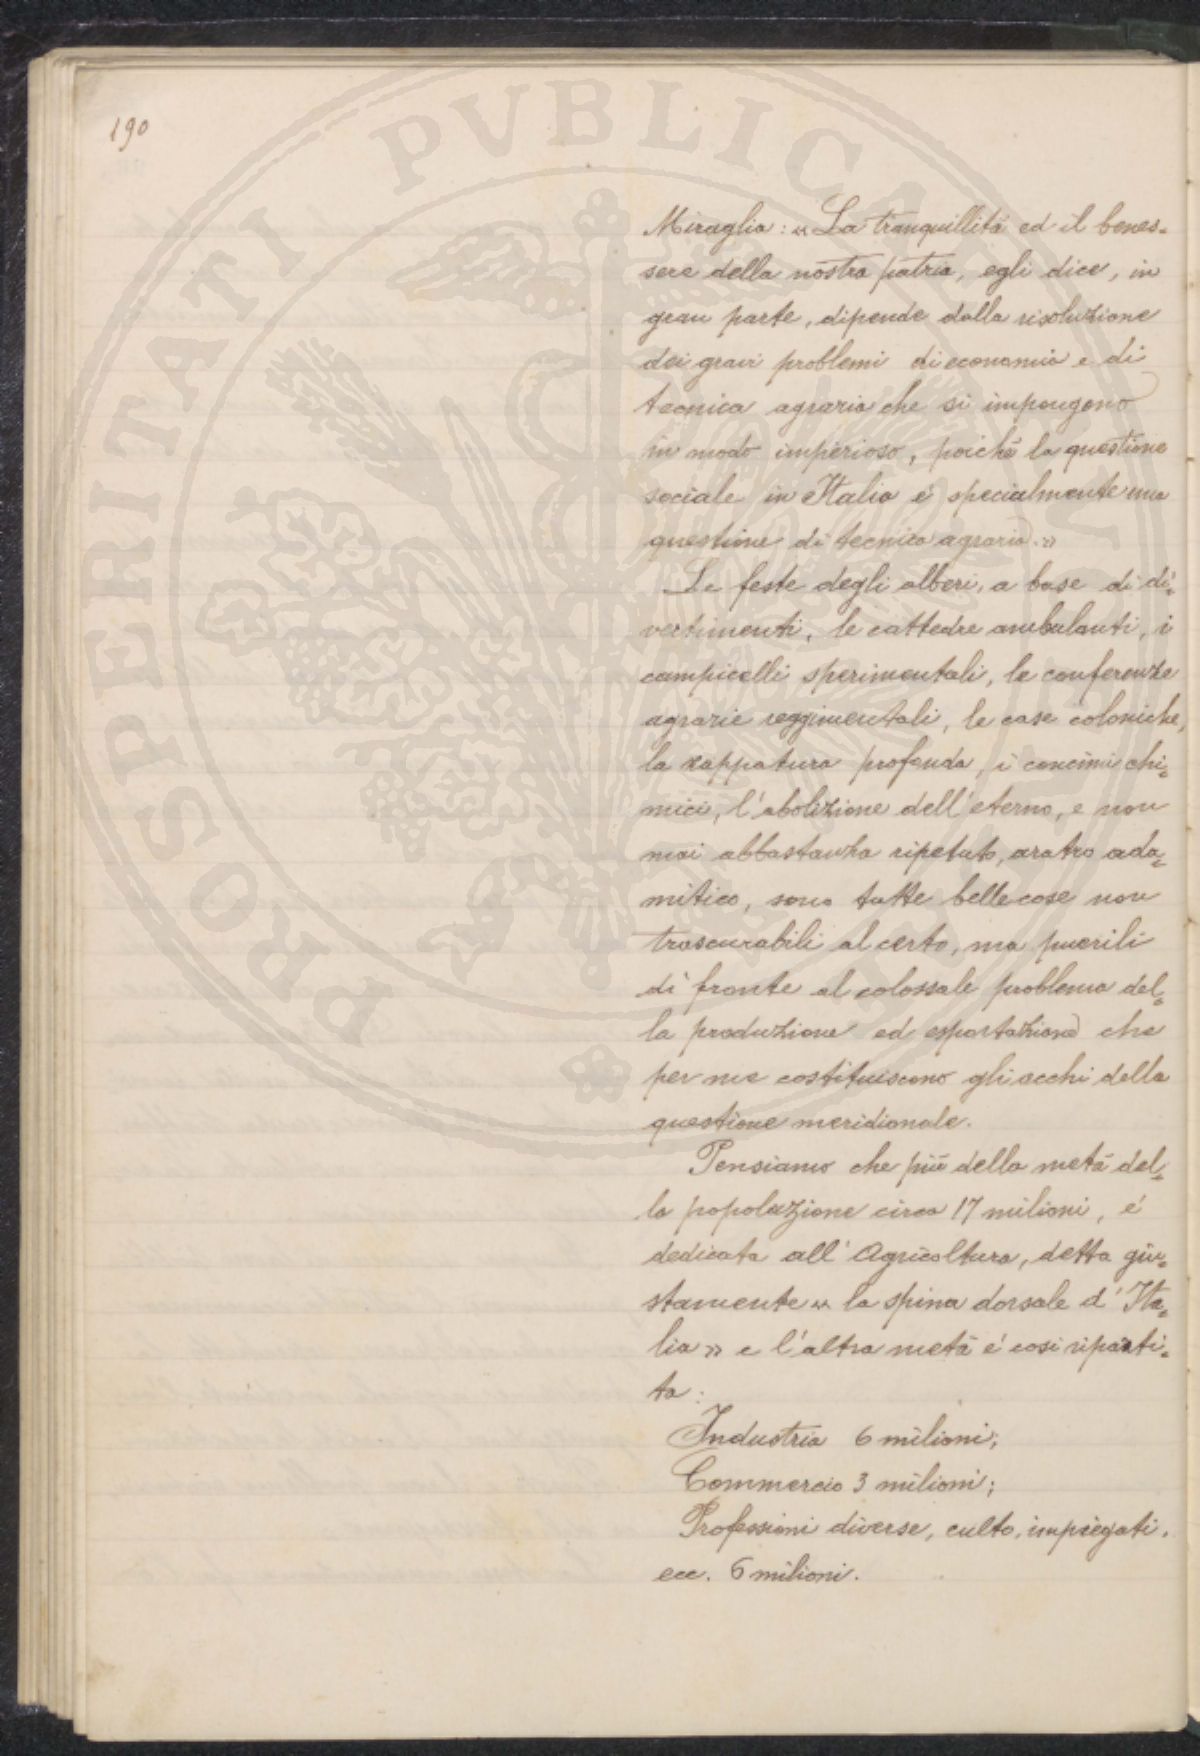 190
PROSPERITATI PVBLICAE
Miraglia: « La tranquillità ed il benes-
sere della nostra patria, egli dice, in
gran parte, dipende dalla risoluzione
dei gravi problemi di economia e di
tecnica agraria che si impongono
in modo imperioso, poichè la questione
sociale in Italia é specialmente una
questione di tecnica agraria.»
Le feste degli alberi, a base di di-
vertimenti, le cattedre ambulanti, i
campicelli sperimentali, le conferenze
agrarie reggimentali, le case coloniche,
la zappatura profonda, i concimi chi-
mici, l'abolizione dell'eterno, e non
mai abbastanza ripetuto, aratro ada-
mitico, sono tutte belle cose non
trascurabili al certo, ma puerili
di fronte al colossale problema del-
la produzione ed esportazione che
per me costituiscono gli occhi della
questione meridionale.
Pensiamo che più della metà del-
la popolazione circa 17 milioni, é
dedicata all'Agricoltura, detta giu-
stamente « la spina dorsale d'Ita-
lia» e l'altra metà é così riparti-
ta:
Industria 6 milioni;
Commercio 3 milioni;
Professioni diverse, culto, impiegati,
ecc. 6 milioni.